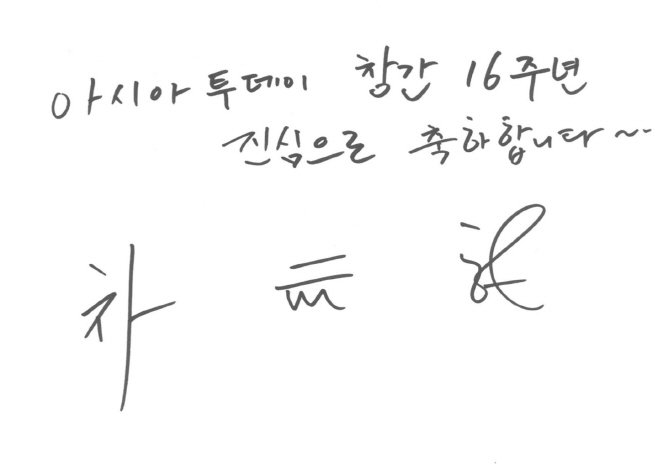 아시아투데이 창간 16주년
진심으로 축하합니다~..
차